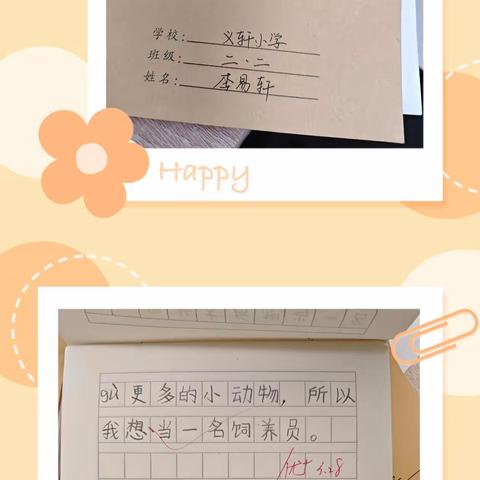 学校：义轩小学
班级：二、二
姓名：李易轩
Happy
gù更多的小动物，所以
我想当一名饲养员。
优+ 4.28